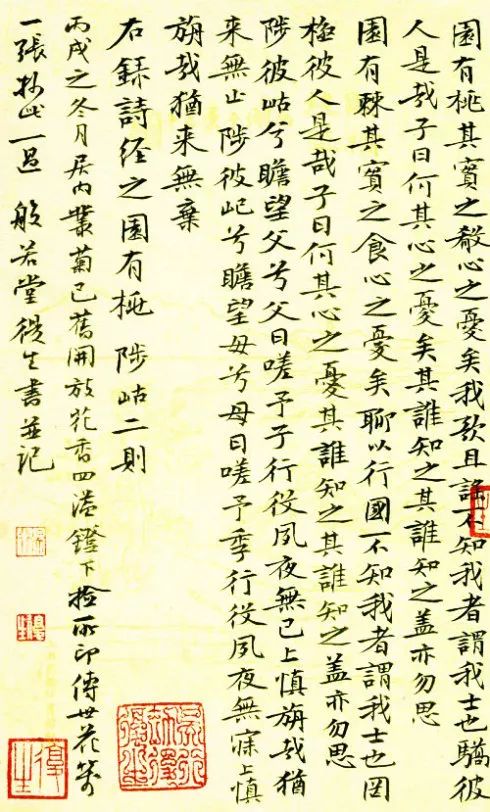 園有桃其實之殽心之憂矣我歌且謠不知我者謂我士也驕彼
人是哉子曰何其心之憂矣其誰知之其誰知之蓋亦勿思
園有棘其實之食心之憂矣聊以行國不知我者謂我士也罔
極彼人是哉子曰何其心之憂其誰知之其誰知之蓋亦勿思
陟彼岵兮瞻望父兮父曰嗟予子行役夙夜無已上慎旃哉猶
来無止陟彼屺兮瞻望母兮母曰嗟予季行役夙夜無寐上慎
旃哉猶来無棄
右録詩经之園有桃陟岵二則
丙戌之冬月居内叢菊已舊開放花香四溢鐙下撿所印傳世花箋
一張抄此一過 般若堂復生書並記
復生